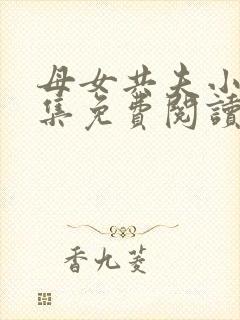 母女共夫小
集免費閱讀
香九菱